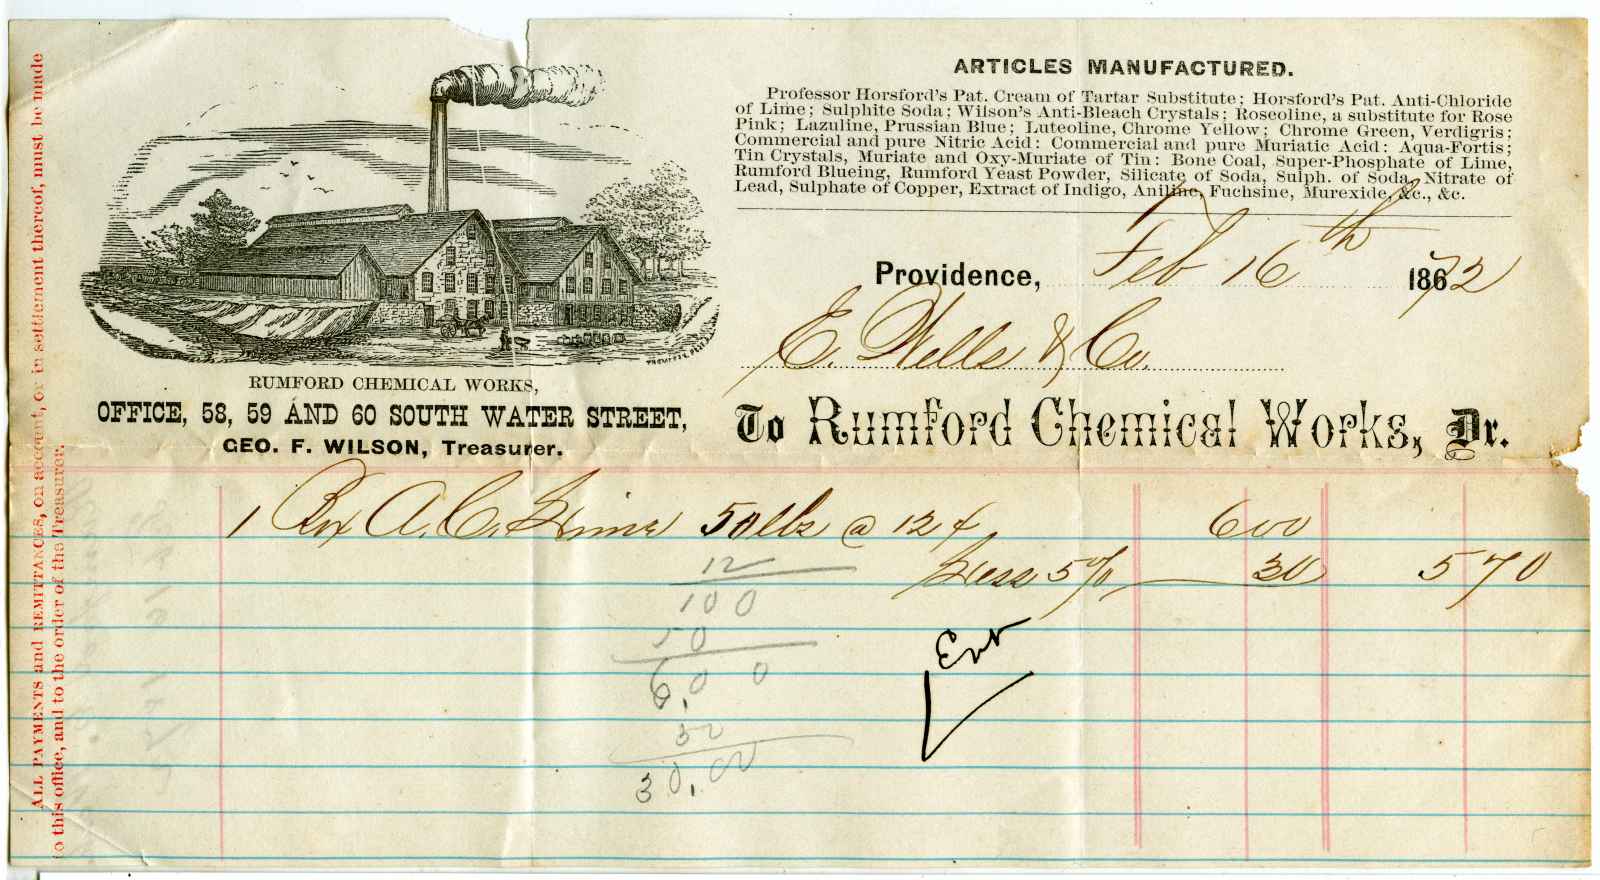 ALL PAYMENTS and REMITTANCES, on account, or in settlement thereof, must be made
to this office, and to the order of the Treasurer.
RUMFORD CHEMICAL WORKS,
OFFICE, 58, 59 AND 60 SOUTH WATER STREET,
GEO. F. WILSON, Treasurer.
ARTICLES MANUFACTURED.
Professor Horsford's Pat. Cream of Tartar Substitute; Horsford's Pat. Anti-Chloride
of Lime; Sulphite Soda; Wilson's Anti-Bleach Crystals; Roseoline, a substitute for Rose
Pink; Lazuline, Prussian Blue; Luteoline, Chrome Yellow; Chrome Green, Verdigris;
Commercial and pure Nitric Acid: Commercial and pure Muriatic Acid: Aqua-Fortis;
Tin Crystals, Muriate and Oxy-Muriate of Tin: Bone Coal, Super-Phosphate of Lime,
Rumford Blueing, Rumford Yeast Powder, Silicate of Soda, Sulph. of Soda, Nitrate of
Lead, Sulphate of Copper, Extract of Indigo, Aniline, Fuchsine, Murexide, &c., &c.
Providence, Feb 16th 1872
E. Wells & Co.
To Rumford Chemical Works, Dr.
1 Box A. C. Lime 50 lbs @ 12 ¢ 600
Less 5% 30 570
12
100
50
6.00
30.00
Ent